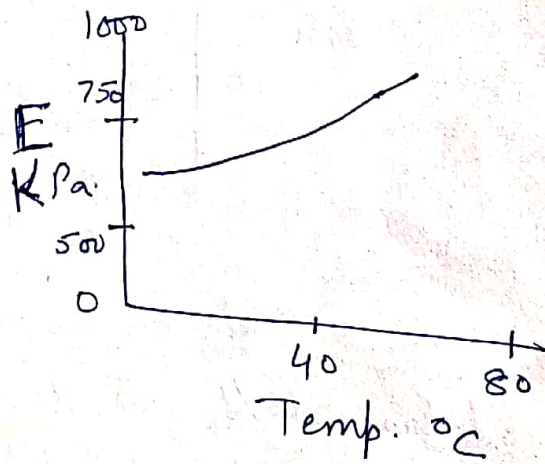 1000
750
E
KPa.
500
0
40
80
Temp. °C